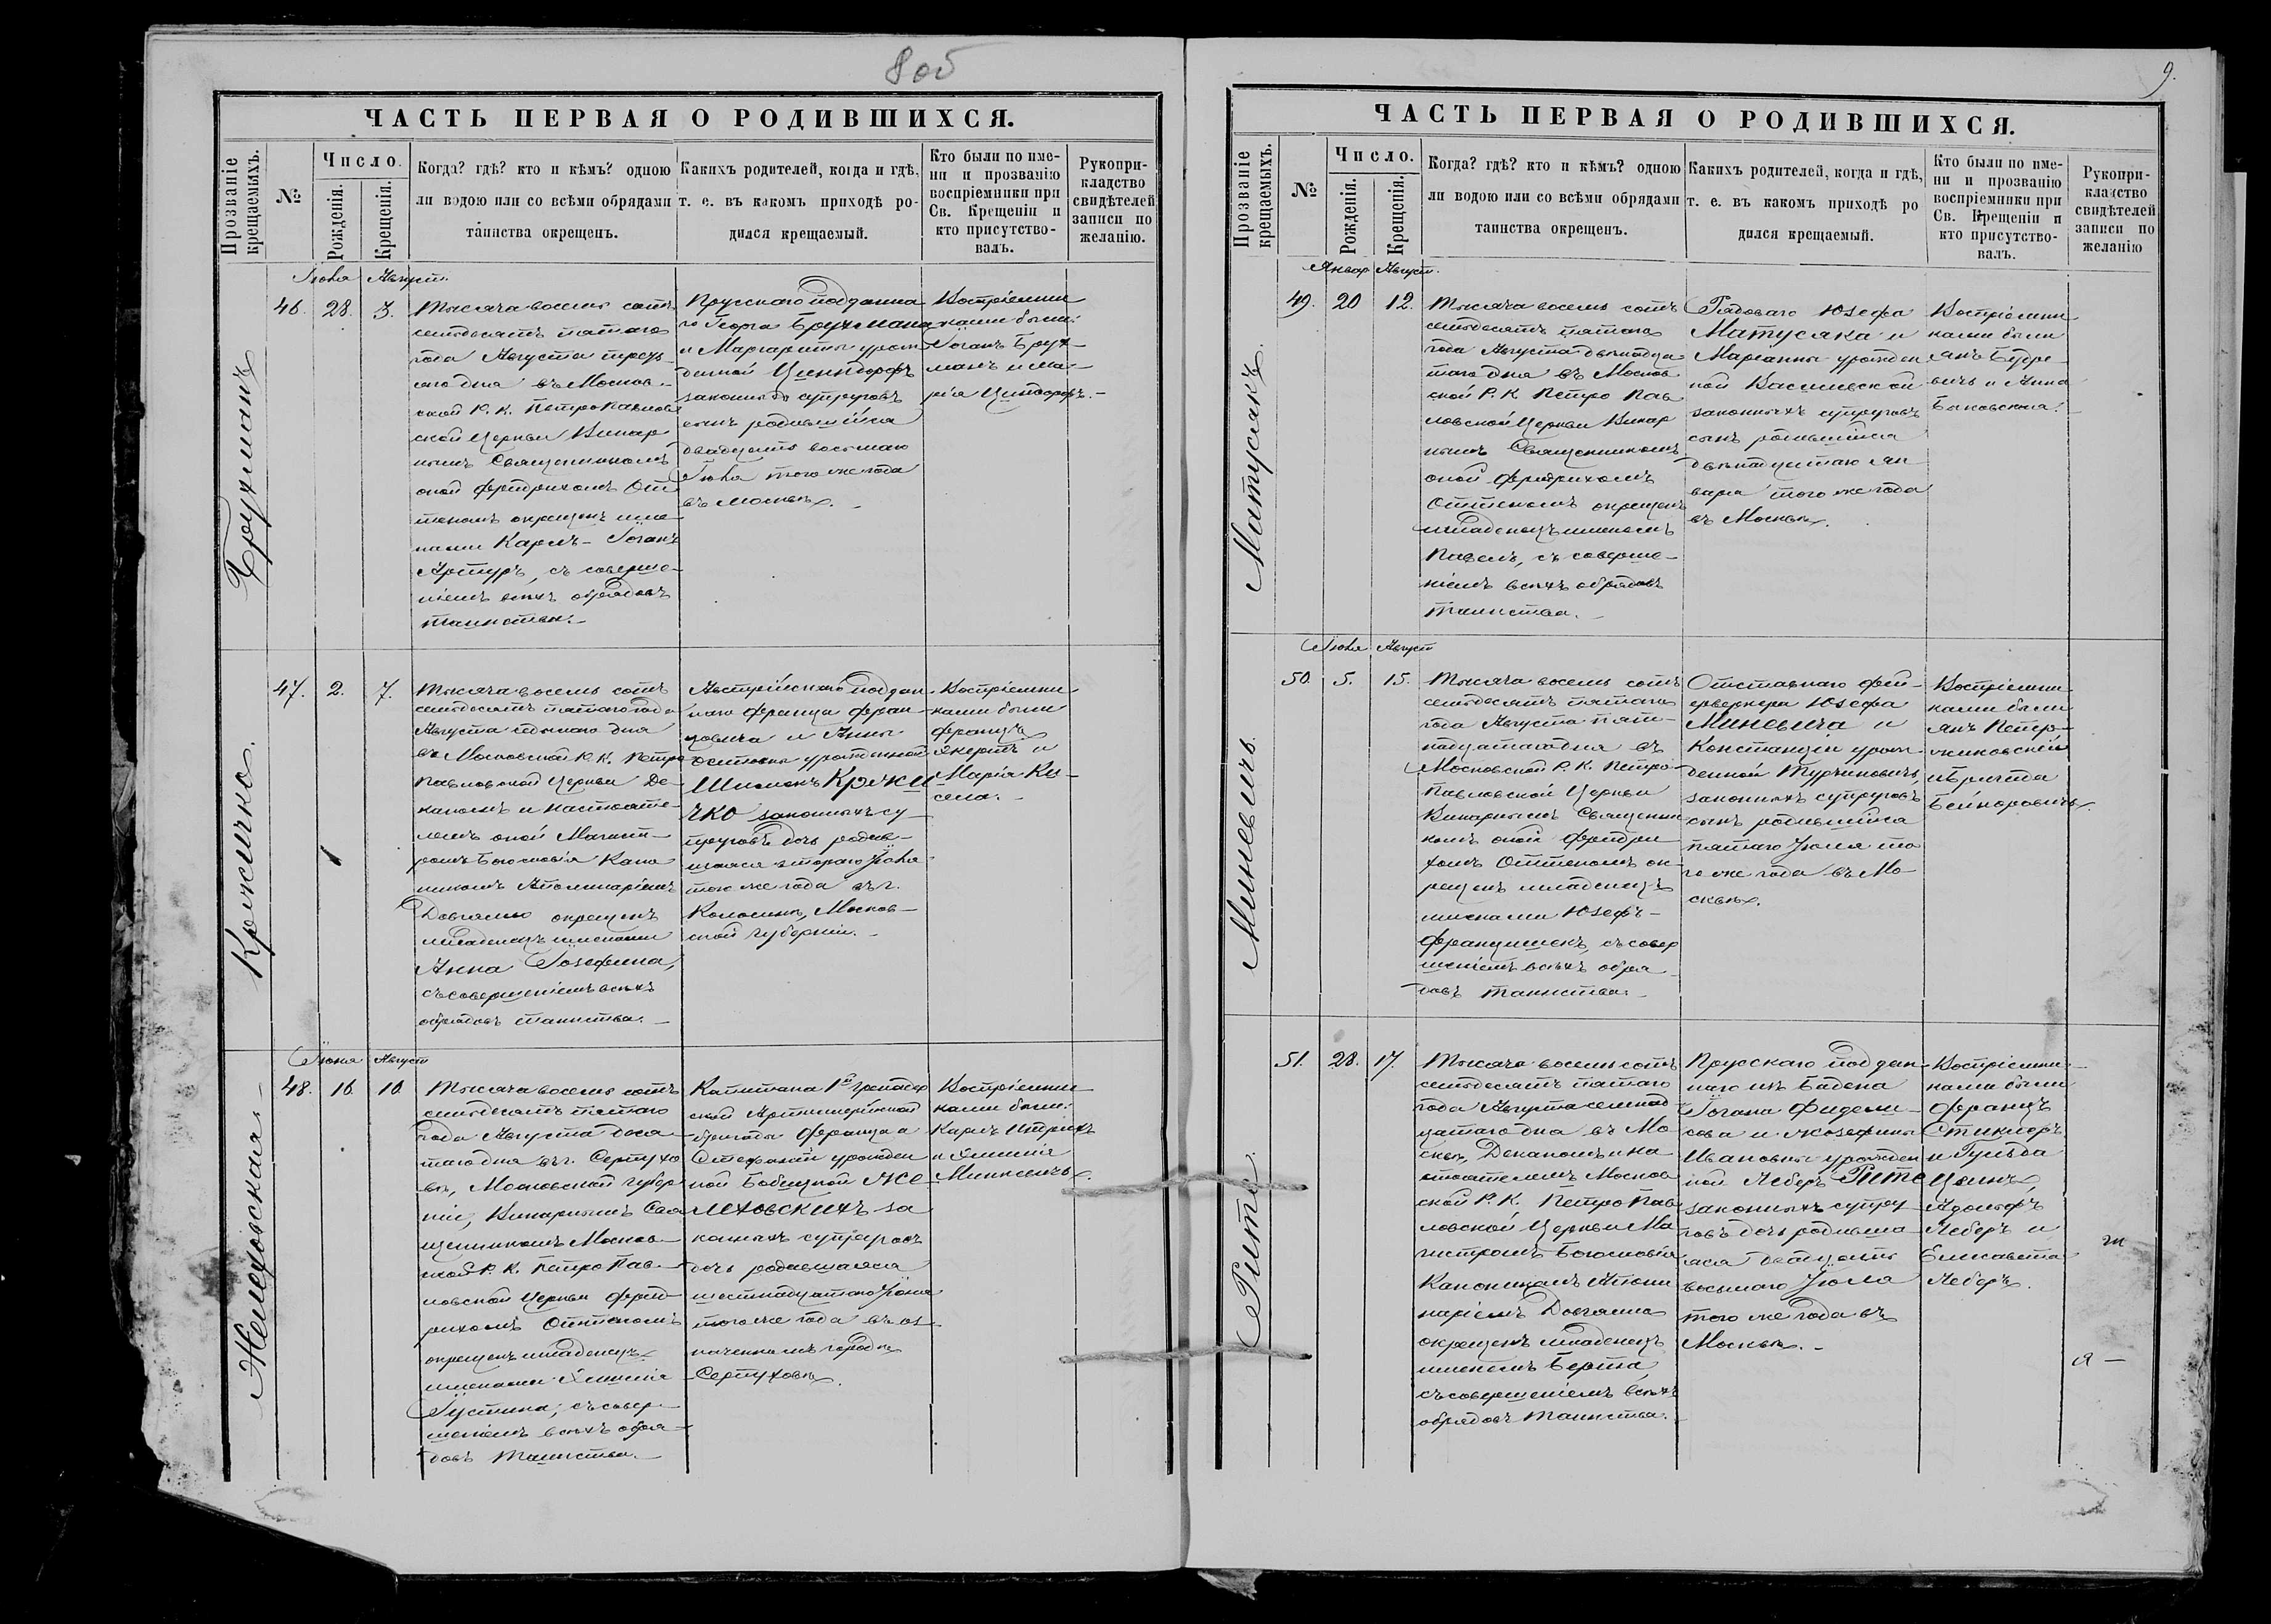 8 об
ЧАСТЬ ПЕРВАЯ О РОДИВШИХСЯ.
Прозваніе крещаемыхъ.
№
Число.
Рожденія.
Крещенія.
Когда? гдѣ? кто и кѣмъ? одною
ли водою или со всѣми обрядами
таинства окрещенъ.
Какихъ родителей, когда и гдѣ,
т. е. въ какомъ приходѣ ро-
дился крещаемый.
Кто были по име-
ни и прозванію
воспріемники при
Св. Крещеніи и
кто присутство-
валъ.
Рукопри-
кладство
свидѣтелей
записи по
желанію.
Брухманъ
Іюля Август.
46. 28. 3.
Тысяча восемь сотъ
семьдесятъ пятаго
года Августа треть-
яго дня въ Москов-
ской Р. К. Петропавлов
ской Церкви Викар
нымъ Священникомъ
оной Фридрихомъ От
теномъ окрещенъ име
нами Карлъ-Іоганъ
Артуръ, съ соверше-
ніемъ всѣхъ обрядовъ
таинства.
Прусскаго поддана
го Георга Брухмана
и Маргариты урож
денной Ценндорфъ
законныхъ супруговъ
сынъ родившійся
двадцать восьмаго
Іюля того же года
въ Москвѣ.
Воспріемни
ками были:
Іоганъ Брух-
манъ и Ма-
рія Циндорфъ.
Кржичко.
47. 2. 7.
Тысяча восемь сотъ
семьдесятъ пятаго года
Августа седьмаго дня
въ Московской Р. К. Петро
павловской Церкви Де-
каномъ и настояте-
лемъ оной Магист-
ромъ Богословія Кано
никомъ Аполинаріемъ
Довгялло окрещенъ
младенецъ именами
Анна Іозефина,
съ совершеніемъ всѣхъ
обрядовъ таинства.
Австрійскаго поддан
наго Франца Фран-
цовича и Анны
урожденной
Шиманъ Кржи
чко законныхъ су-
пруговъ дочь родив-
шаяся втораго Іюля
того же года въ г.
Коломнѣ, Москов-
ской губерніи.
Воспріемни
ками были
Францъ
Экертъ и
Марія Ки-
села.
Желеховская
Іюня Август
48. 16. 10.
Тысяча восемь сотъ
семьдесятъ пятаго
года Августа деся
таго дня въ г. Серпухо
вѣ, Московской губер
ніи, Викарнымъ Свя
щенникомъ Москов-
ской Р. К. Петро Пав-
ловской Церкви Фрид-
рихомъ Оттеномъ
окрещенъ младенецъ
именами Эмилія
Іустина, съ совер-
шеніемъ всѣхъ обря-
довъ таинства.
Капитана 1й Гренадер
ской Артиллерійской
бригады Франца и
Стефаніи урожден
ной Бобицкой Же-
леховскихъ за
конныхъ супруговъ
дочь родившаяся
шестнадцатаго Іюня
того же года въ оз-
наченномъ городѣ
Серпуховѣ.
Воспріемни
ками были:
Карлъ
и Эмилія
Минкевичъ.
9.
ЧАСТЬ ПЕРВАЯ О РОДИВШИХСЯ.
Прозваніе крещаемыхъ.
№
Число.
Рожденія.
Крещенія.
Когда? гдѣ? кто и кѣмъ? одною
ли водою или со всѣми обрядами
таинства окрещенъ.
Какихъ родителей, когда и гдѣ,
т. е. въ какомъ приходѣ ро
дился крещаемый.
Кто были по име-
ни и прозванію
воспріемники при
Св. Крещеніи и
кто присутство-
валъ.
Рукопри-
кладство
свидѣтелей
записи по
желанію
Матусякъ.
Январ Август.
49. 20 12.
Тысяча восемь сотъ
семьдесятъ пятаго
года Августа двѣнадца
таго дня въ Москов
ской Р. К. Петро Пав
ловской Церкви Викар
нымъ Священникомъ
оной Фридрихомъ
Оттеномъ окрещенъ
младенецъ именемъ
Павелъ, съ соверше-
ніемъ всѣхъ обрядовъ
таинства.
Рядоваго Юзефа
Матусяка и
Маріанны урожден
ной Василевской
законныхъ супруговъ
сынъ родившійся
двѣнадцатаго Ян
варя того же года
въ Москвѣ.
Воспріемни
ками были
Янъ
и Анна
Баковская.
Миневичъ.
Іюля Август
50. 5. 15.
Тысяча восемь сотъ
семьдесятъ пятаго
года Августа пят-
надцатаго дня въ
Московской Р. К. Петро-
павловской Церкви
Викарнымъ Священни
комъ оной Фридри
хомъ Оттеномъ ок-
рещенъ младенецъ
именами Юзефъ-
Францишекъ, съ совер
шеніемъ всѣхъ обря
довъ таинства.
Отставнаго фей-
ерверкера Юзефа
Миневича и
Констанціи урож-
денной Турчиновичъ,
законныхъ супруговъ
сынъ родившійся
пятаго Іюля то
го же года въ Мо-
сквѣ.
Воспріемни
ками были
Янъ Петро-
жиковскій
и Бригида
Бейноровичъ.
Рите.
51. 28. 17.
Тысяча восемь сотъ
семьдесятъ пятаго
года Августа семнад
цатаго дня въ Мо
сквѣ, Деканомъ и на
стоятелемъ Москов
ской Р. К. Петро Пав
ловской Церкви Ма
гистромъ Богословія
Каноникомъ Аполи
наріемъ Довгялло
окрещенъ младенецъ
именемъ Берта,
съ совершеніемъ всѣхъ
обрядовъ таинства.
Прусскаго поддан
наго изъ Бадена
Іогана Фидели-
сова и Жозефины
Ивановны урожден
ной Леберъ Рите
законныхъ супру-
говъ дочь родивша
яся двадцать
восьмаго Іюля
того же года въ
Москвѣ.
Воспріемни-
ками были
Францъ
Стиклоръ
и Гульда
Адольфъ
Леберъ и
Елисавета
Леберъ.